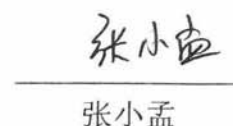 张小孟
张小孟